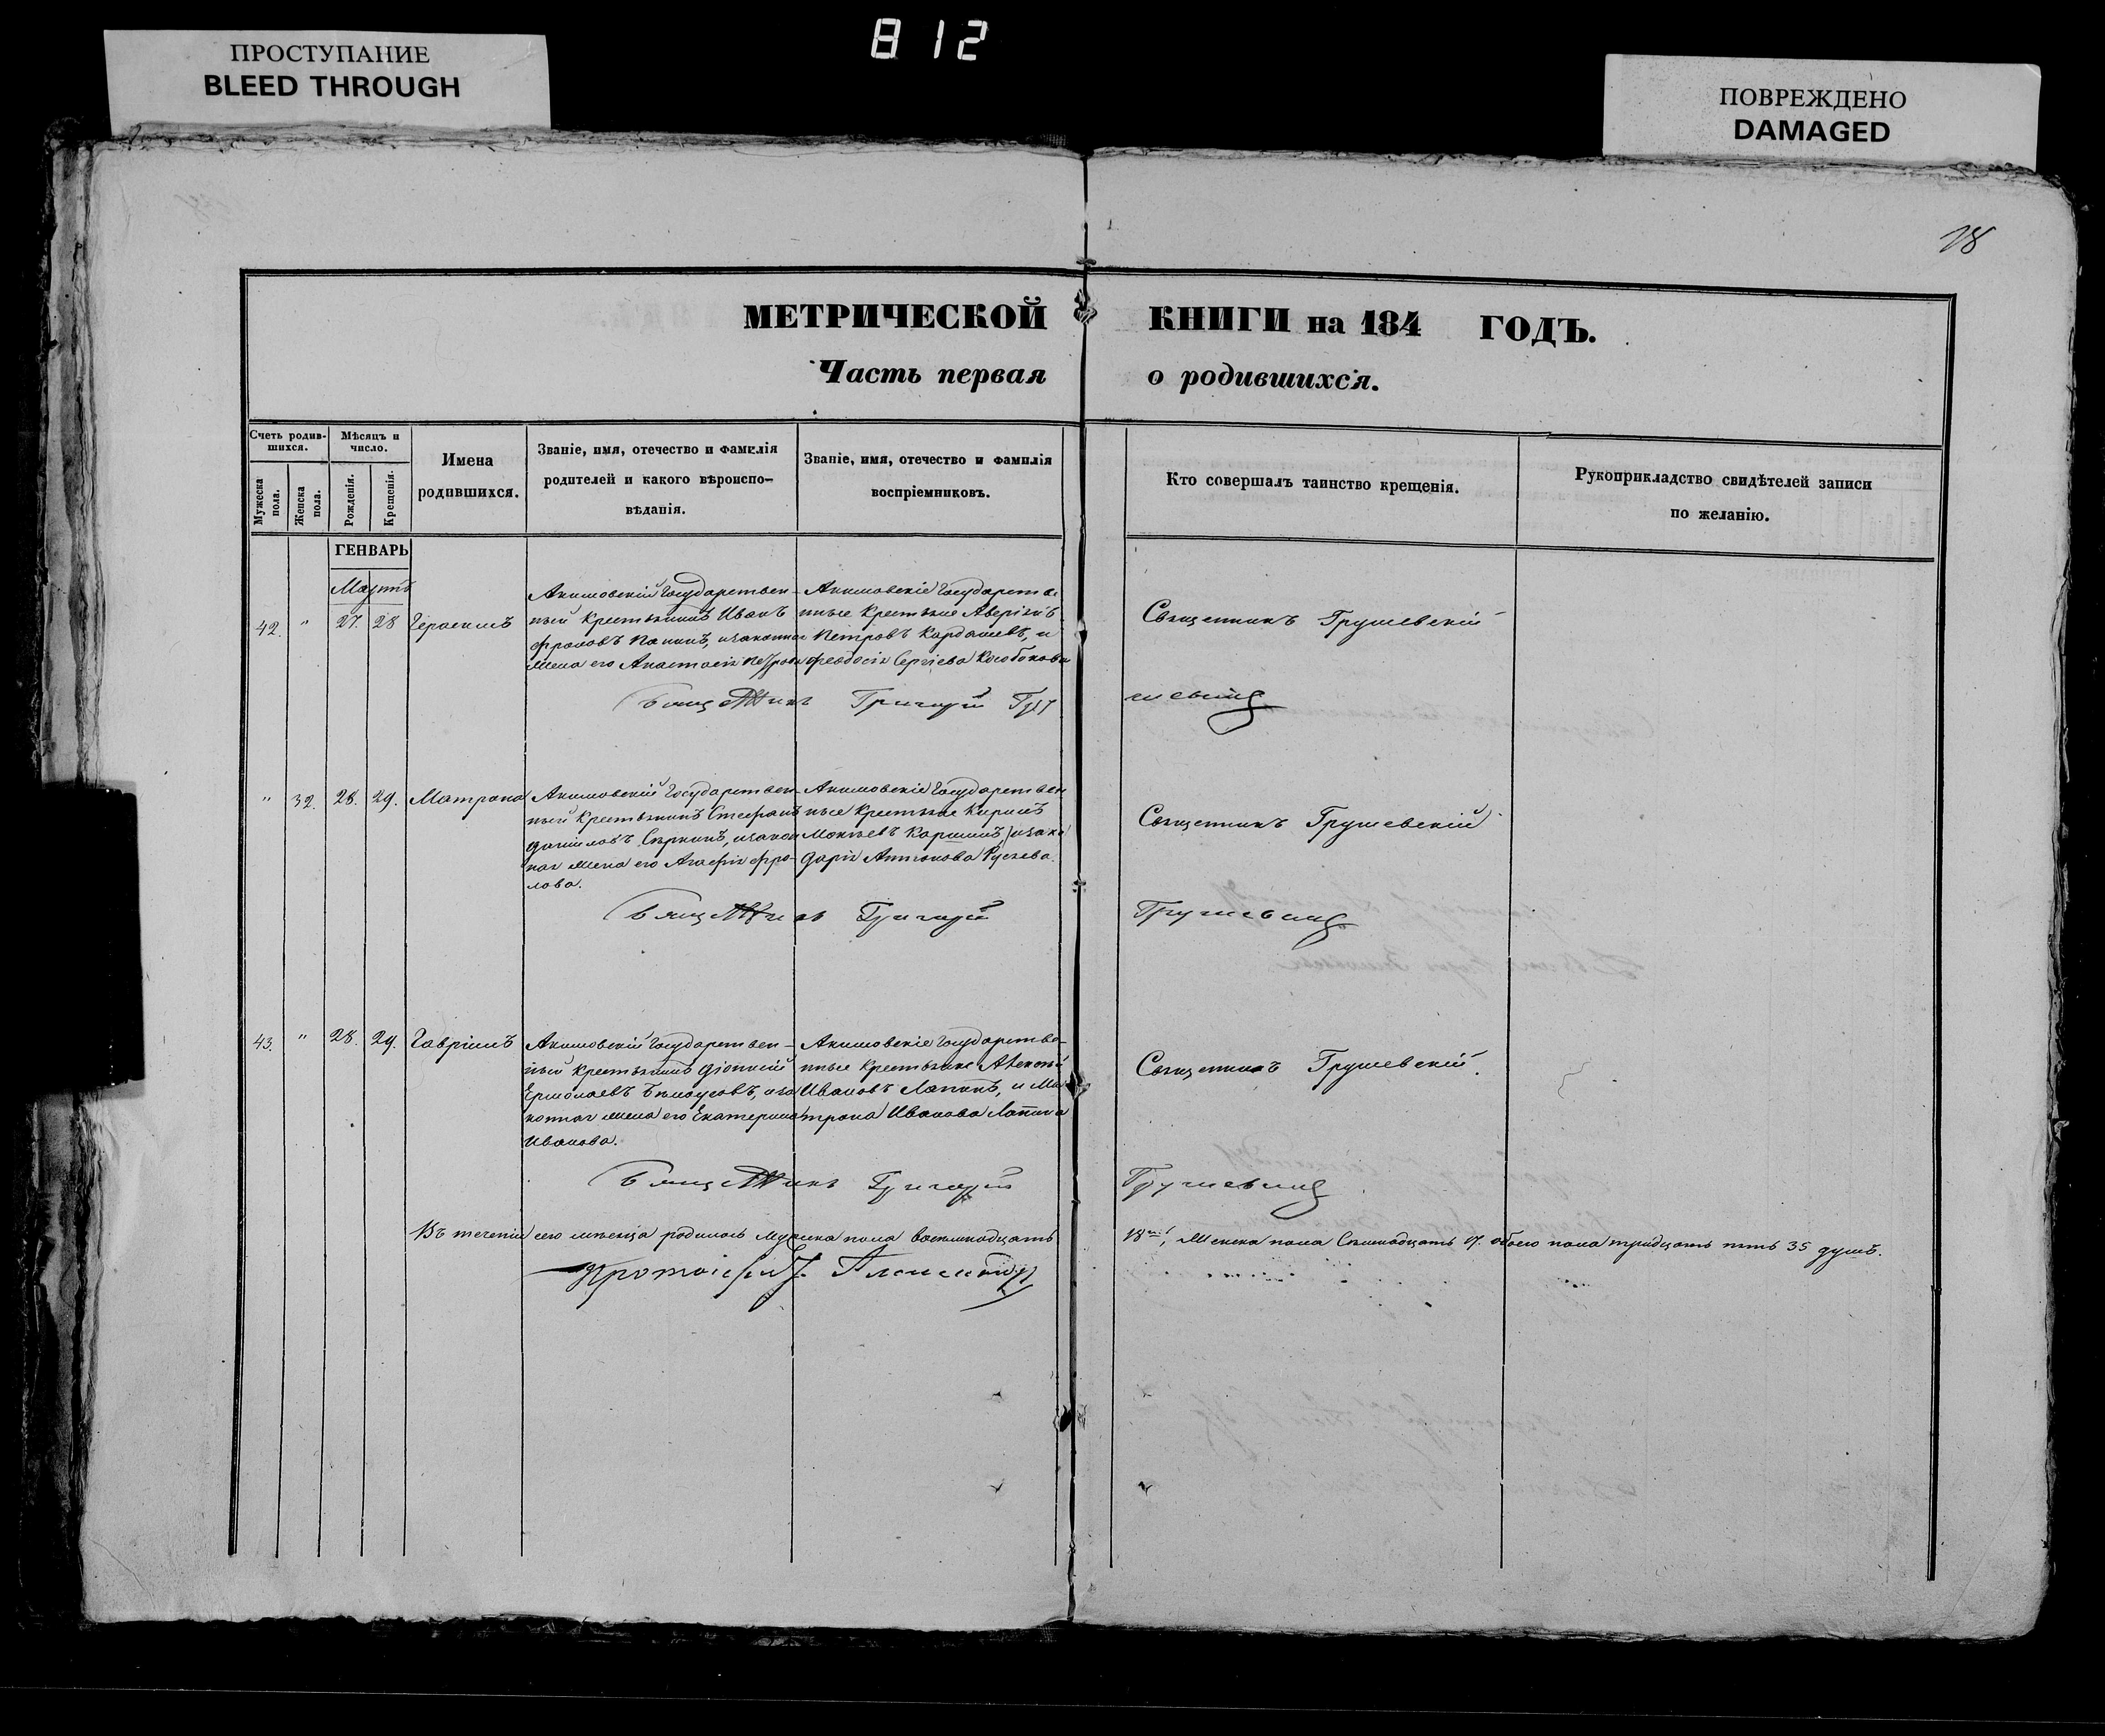 812
ПРОСТУПАНИЕ
BLEED THROUGH
ПОВРЕЖДЕНО
DAMAGED
18
МЕТРИЧЕСКОЙ КНИГИ на 184 ГОДЪ.
Часть первая о родившихся.
Счетъ родив-
шихся.
Мужеска
пола.
Женска
пола.
Мѣсяцъ и
число.
Рожденія.
Крещенія.
Имена
родившихся.
Званіе, имя, отечество и фамилія
родителей и какого вѣроиспо-
вѣданія.
Званіе, имя, отечество и фамилія
воспріемниковъ.
Кто совершалъ таинство крещенія.
Рукоприкладство свидѣтелей записи
по желанію.
ГЕНВАРЬ
Мартъ
42. " 27. 28 Герасимъ
Акимовскій Государствен-
ный крестьянинъ Иванъ
Фроловъ Панинъ, и законная
жена его Анастасія Петрова
Акимовскіе Государстве
нные крестьяне Аверкій
Петровъ Кардашевъ, и
Феодосія Сергіева Кособокова
Священникъ Грушевскій
Священникъ Григорій Грушевскій
" 32. 28. 29. Матрона
Акимовскій Государствен
ный крестьянинъ Стефанъ
Даниловъ Сѣркинъ, и закон
ная жена его Агафія Фро-
лова.
Акимовскіе Государствен
ные крестьяне Кирилъ
Мокіевъ Каршинъ,
Дарія Антонова
Священникъ Грушевскій
Священникъ Григорій Грушевскій
43. " 28. 29. Гавріилъ
Акимовскій Государствен-
ный крестьянинъ Діонисій
Ермолаевъ Бѣлоусовъ, и за
конная жена его Екатерина
Иванова.
Акимовскіе Государстве-
нные крестьяне Алексѣй
Ивановъ Лапинъ, и Ма
трона Иванова Лапина
Священникъ Грушевскій.
Священникъ Григорій Грушевскій
Въ теченіи сего мѣсяца родилось мужска пола восемнадцать 18ть, женска пола семнадцать 17. обоего пола тридцать пять 35 душъ.
Протоіерей